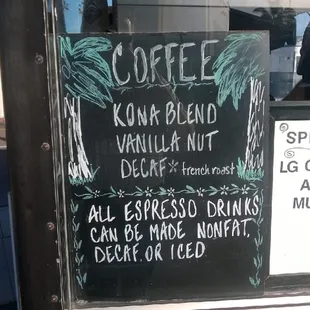 COFFEE
KONA BLEND
VANILLA NUT
DECAF* french roast
ALL ESPRESSO DRINKS
CAN BE MADE NONFAT,
DECAF. OR ICED